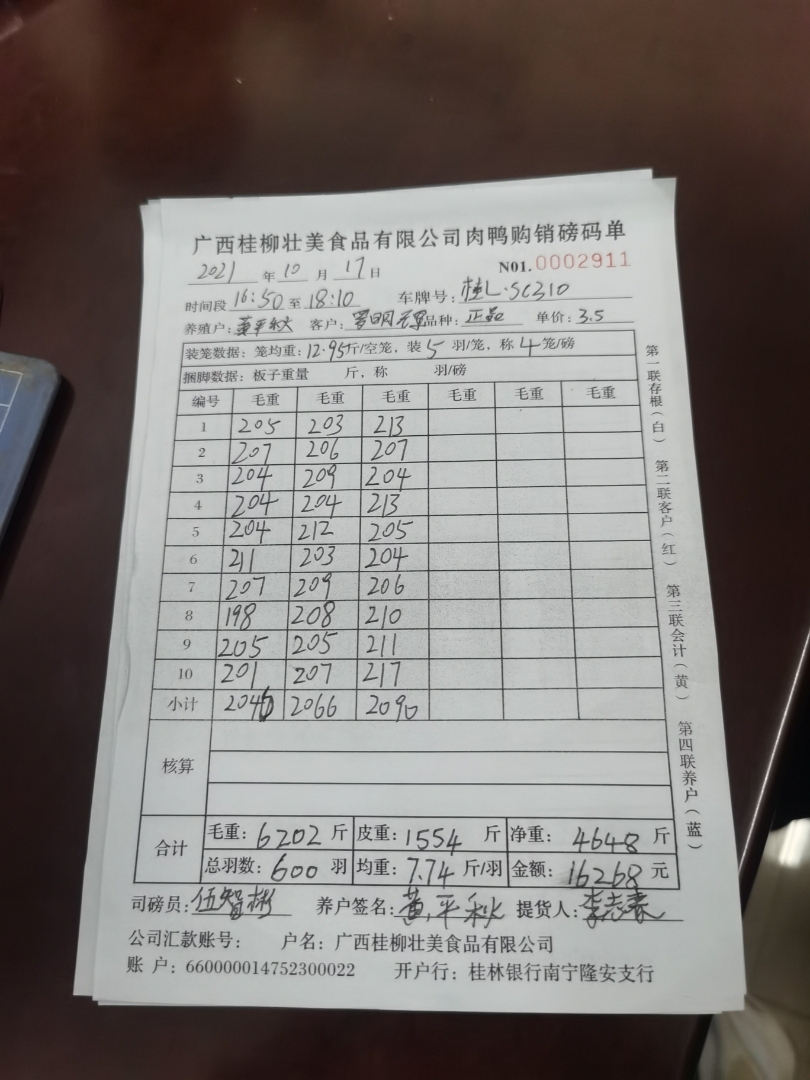 广西桂柳壮美食品有限公司肉鸭购销磅码单
2021 年 10 月 17 日 N01.0002911
时间段 16:50 至 18:10 车牌号: 桂L·SC310
养殖户: 黄平秋 客户: 罗明 品种: 正品 单价: 3.5
装笼数据: 笼均重: 12.95斤/空笼, 装 5 羽/笼, 称 4 笼/磅
捆脚数据: 板子重量 斤, 称 羽/磅
编号 毛重 毛重 毛重 毛重 毛重 毛重
1 205 203 213
2 207 206 207
3 204 209 204
4 204 204 213
5 204 212 205
6 211 203 204
7 207 209 206
8 198 208 210
9 205 205 211
10 201 207 217
小计 2046 2066 2090
核算
合计 毛重: 6202 斤 皮重: 1554 斤 净重: 4648 斤
总羽数: 600 羽 均重: 7.74 斤/羽 金额: 16268 元
司磅员: 伍智彬 养户签名: 黄平秋 提货人: 李志春
公司汇款账号: 户名: 广西桂柳壮美食品有限公司
账 户: 660000014752300022 开户行: 桂林银行南宁隆安支行
第一联存根(白) 第二联客户(红) 第三联会计(黄) 第四联养户(蓝)